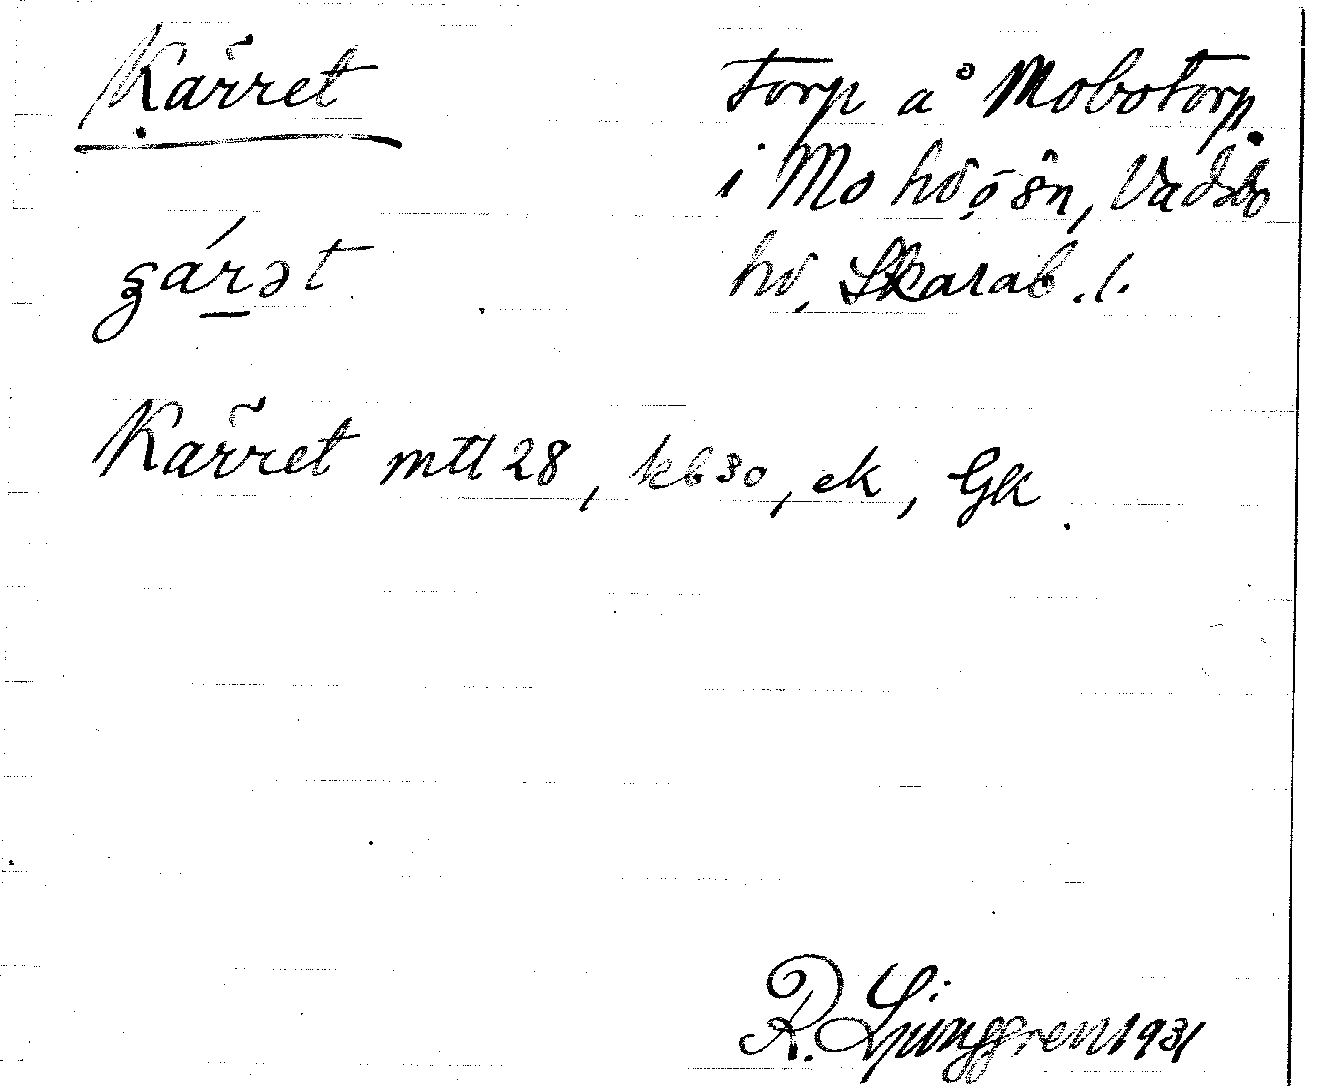 Kärret
Torp å Mobotorp
i Mo hd o sn, Vadsbo
hd, Skarab. l.
Kärret mtl 28, kb 30, ek, Gk
R. Ljunggren 1931